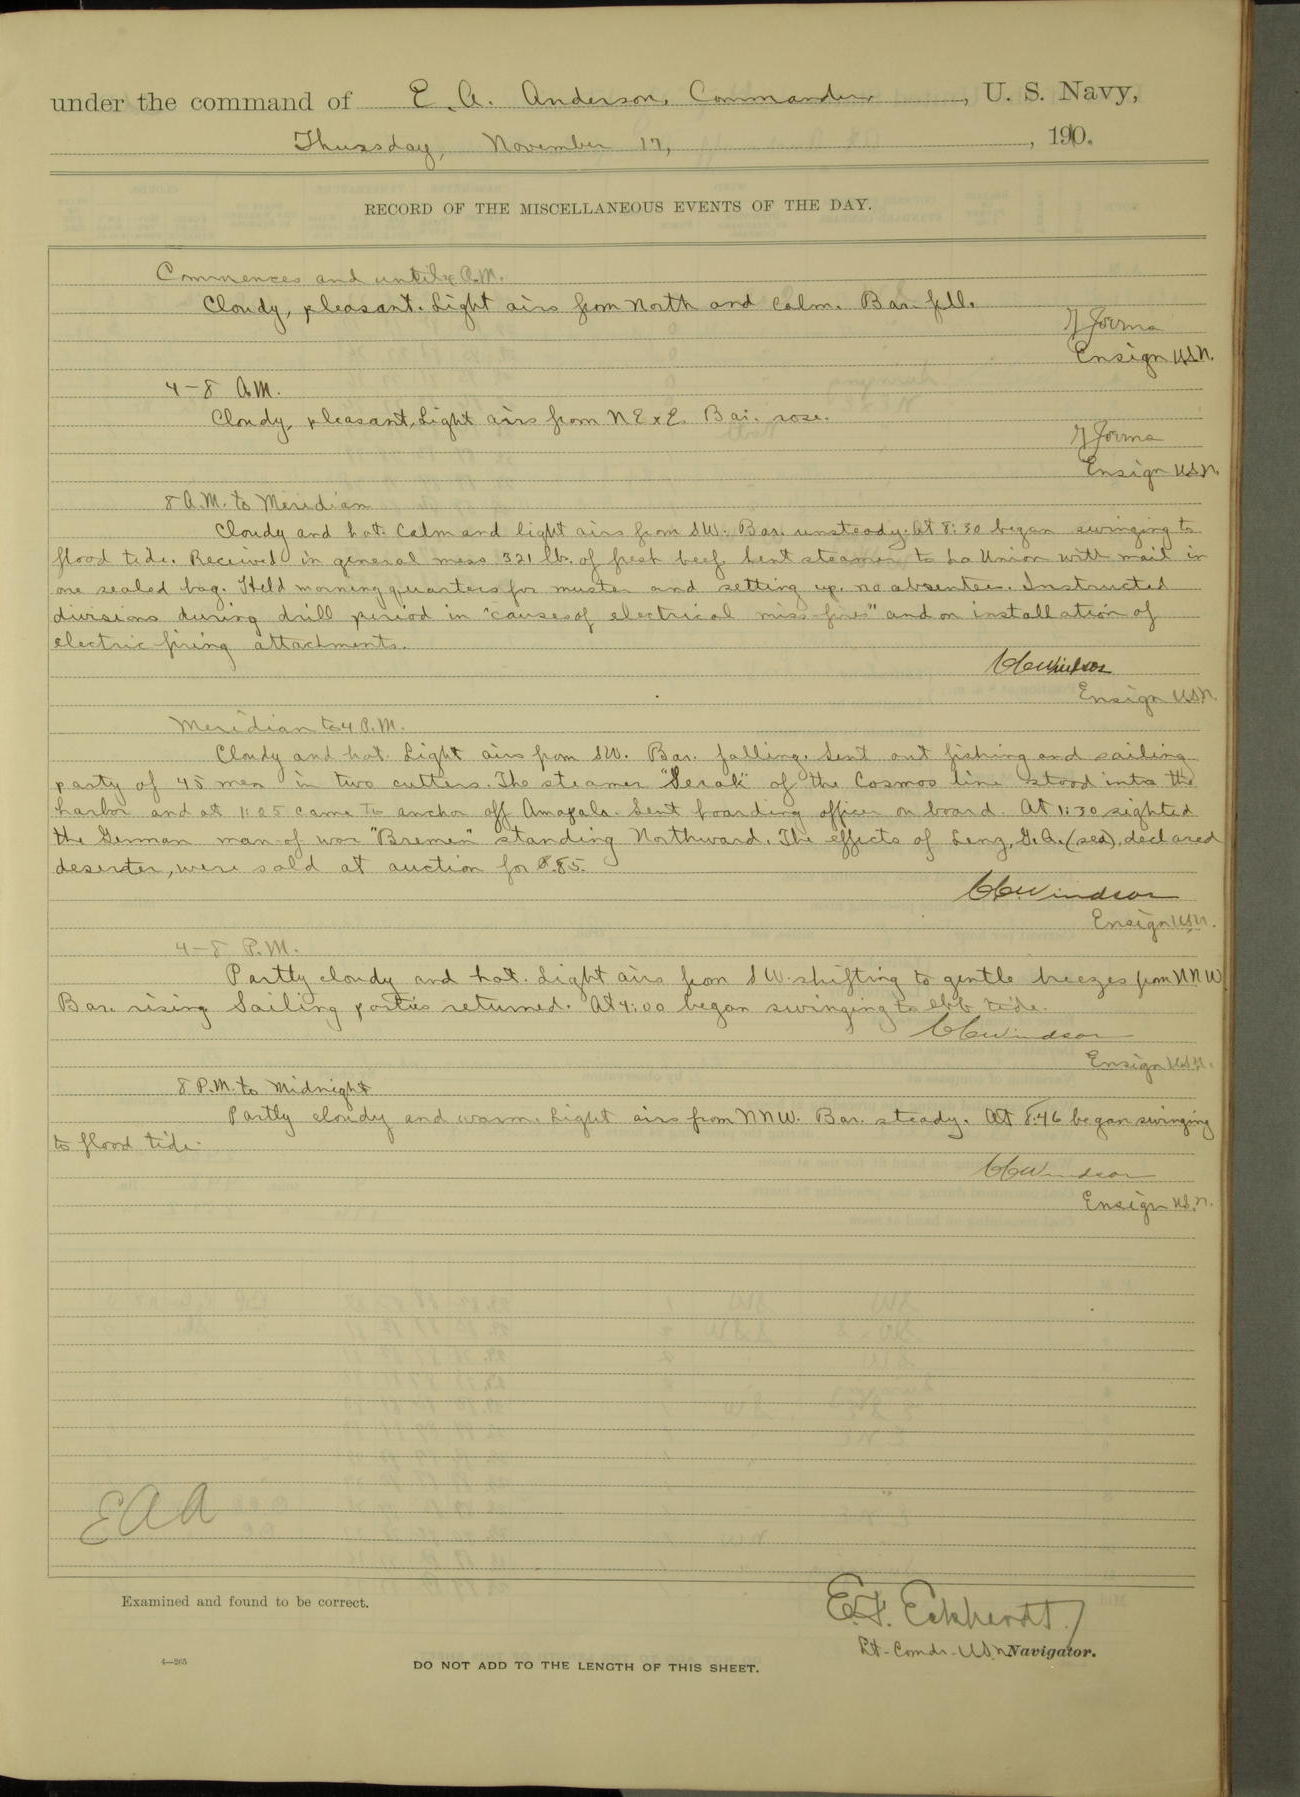 under the command of E. A. Anderson, Commander, U. S. Navy,
Thursday, November 17, 1910.
RECORD OF THE MISCELLANEOUS EVENTS OF THE DAY.
Commences and until 4 A.M.
Cloudy, pleasant. Light airs from North and calm. Bar. fell.
Ensign U.S.N.
4-8 A.M.
Cloudy, pleasant, Light airs from NExE. Bar. rose.
Ensign U.S.N.
8 A.M. to Meridian
Cloudy and hot. Calm and light airs from SW. Bar. unsteady. At 8:30 began swinging to
flood tide. Received in general mess 321 lbs. of fresh beef. Sent steamer to La Union with mail in
one sealed bag. Held morning quarters for muster and setting up, no absentees. Instructed
divisions during drill period in "causes of electrical miss-fires" and on installation of
electric firing attachments.
CCWindsor
Ensign USN.
Meridian to 4 P.M.
Cloudy and hot. Light airs from SW. Bar. falling. Sent out fishing and sailing
party of 45 men in two cutters. The steamer "Serak" of the Cosmos line stood into the
harbor and at 1:05 came to anchor off Amapala. Sent boarding officer on board. At 1:30 sighted
the German man-of war "Bremen" standing Northward. The effects of Lenz, G.A. (sea), declared
deserter, were sold at auction for $.85.
CCWindsor
Ensign USN.
4-8 P.M.
Partly cloudy and hot. Light airs from SW. shifting to gentle breezes from NNW.
Bar. rising Sailing parties returned. At 4:00 began swinging to ebb tide.
CCWindsor
Ensign USN.
8 P.M. to Midnight
Partly cloudy and warm. Light airs from NNW. Bar. steady. At 8:46 began swinging
to flood tide.
CCWindsor
Ensign U.S.N.
EAA
Examined and found to be correct.
E.F. Eckhardt
Lt-Comdr-USN Navigator.
4—265
DO NOT ADD TO THE LENGTH OF THIS SHEET.